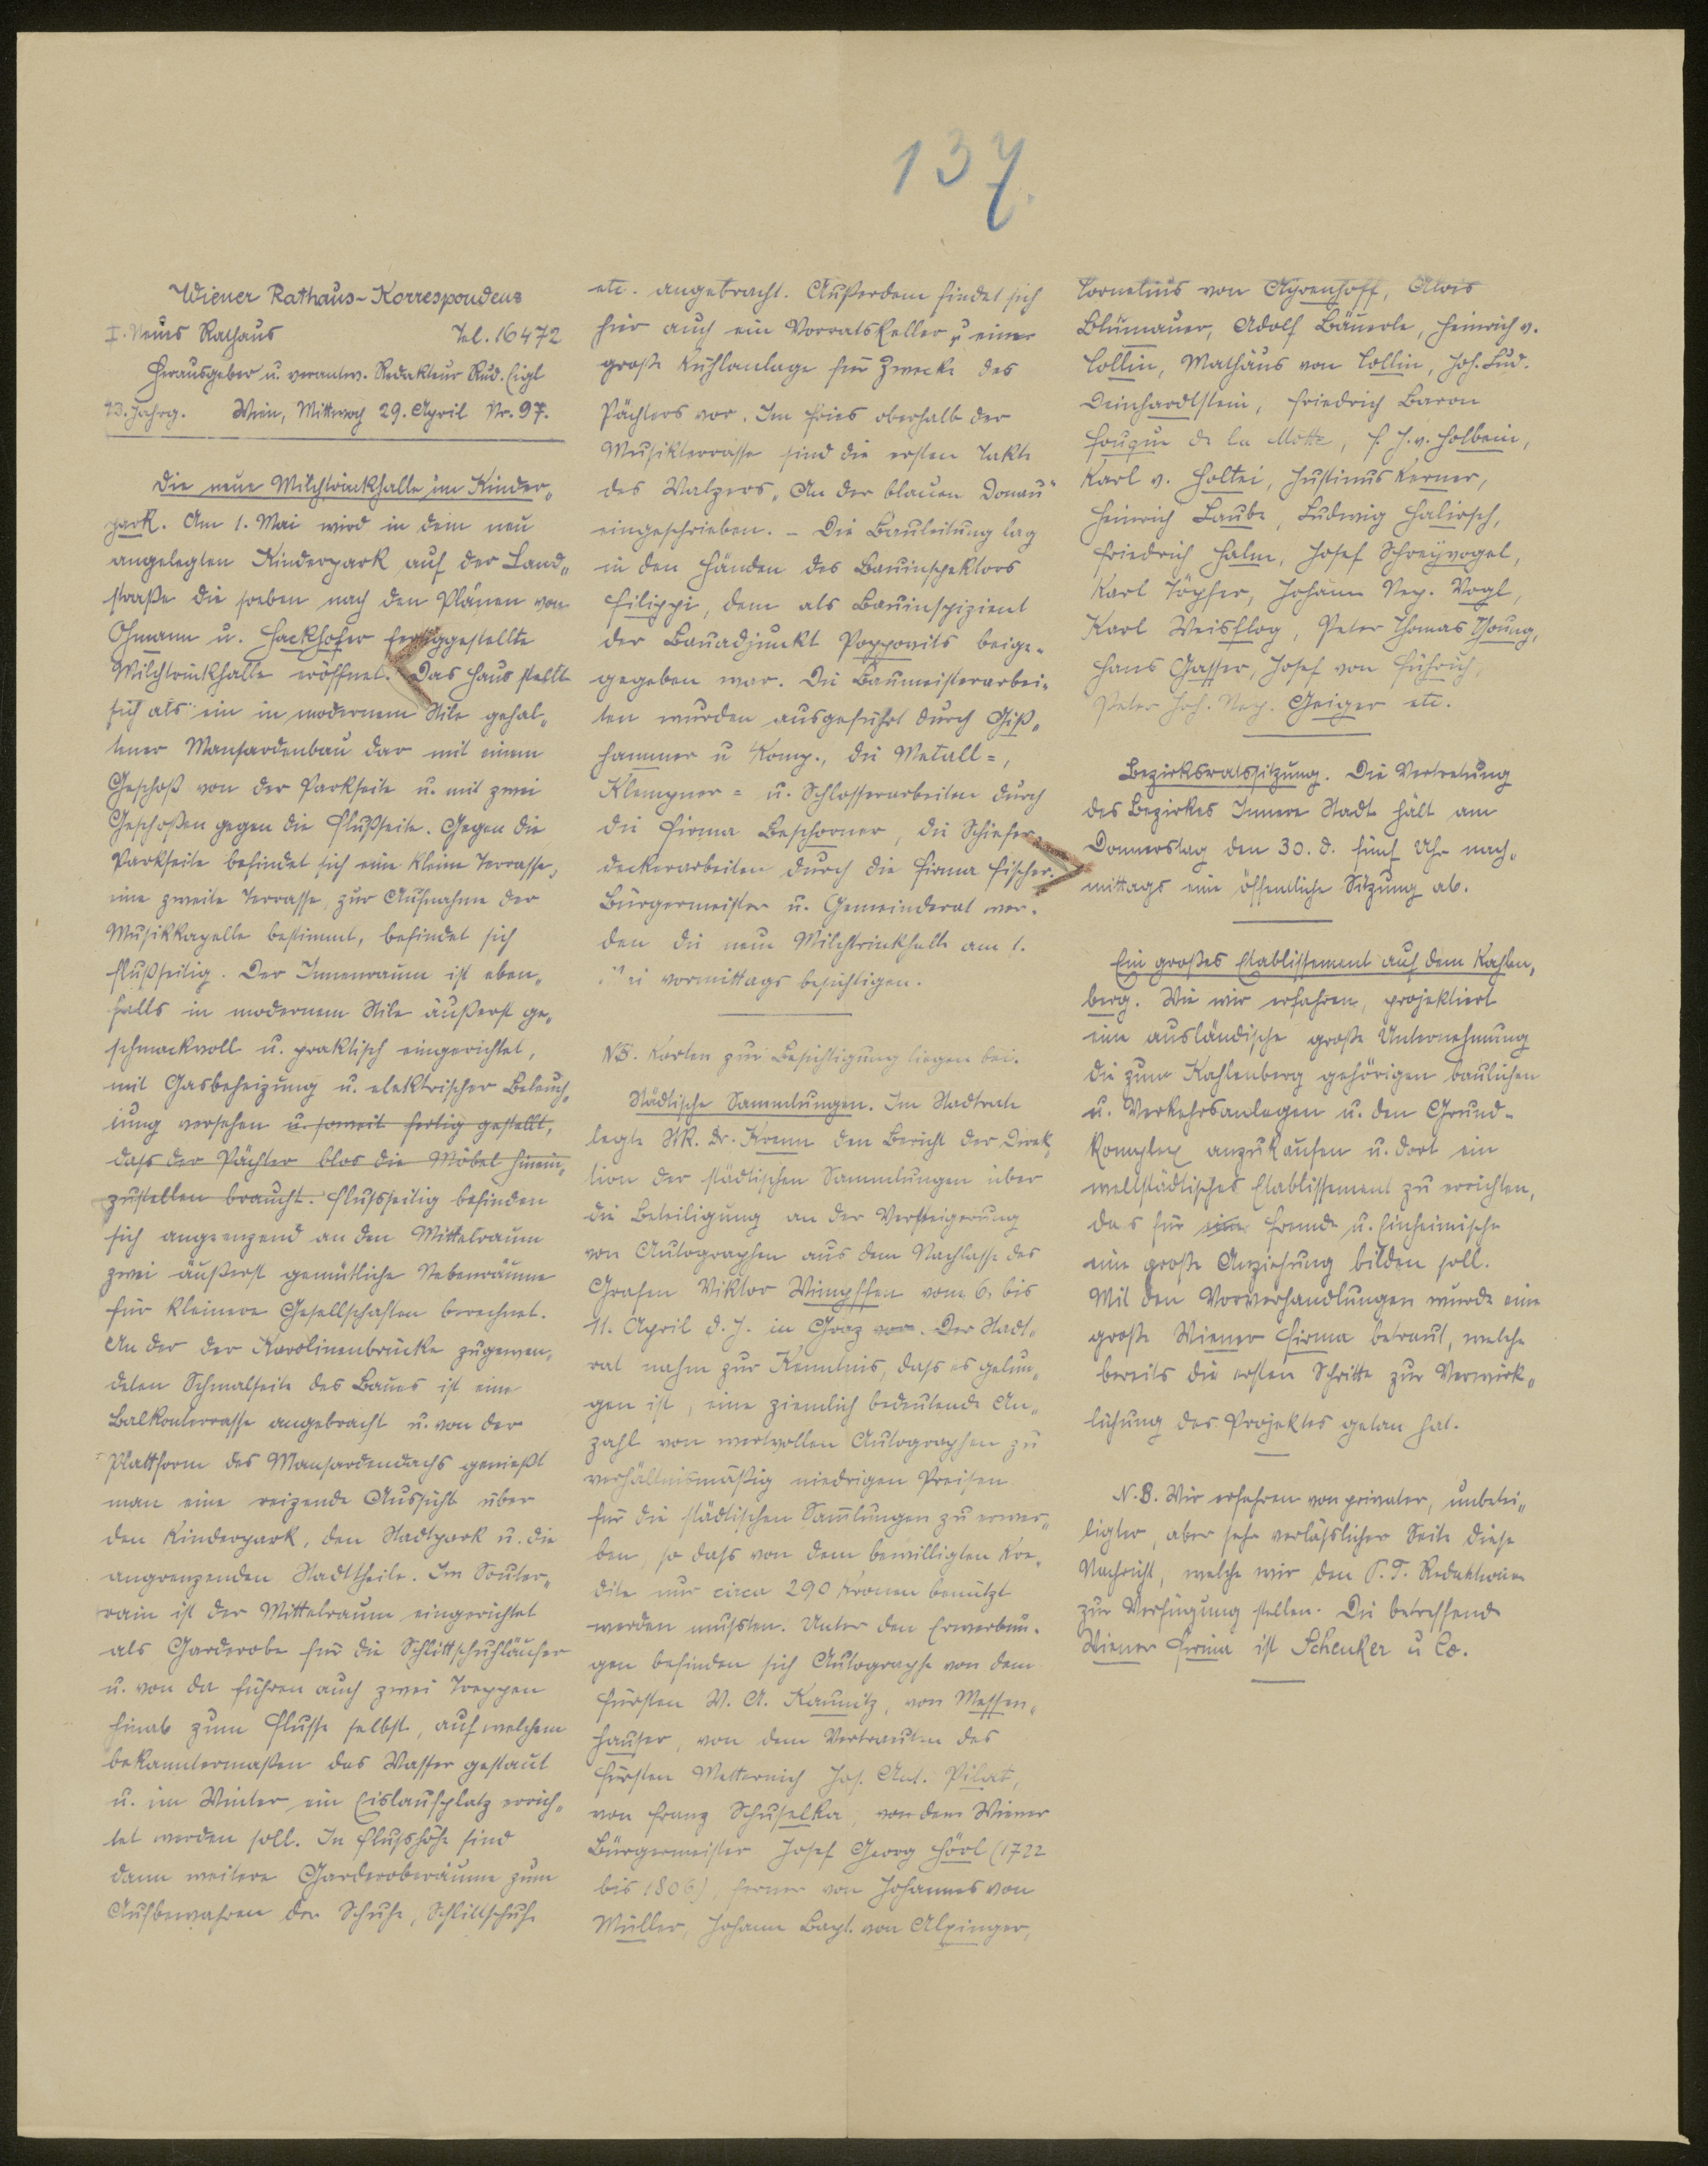 137.
Wiener Rathaus-Korrespondenz
I. Neues Rathaus Tel. 16472
Herausgeber u. verantw. Redakteur Rud. Eigl
13. Jahrg. Wien, Mittwoch 29. April Nr. 97.
Die neue Milchtrinkhalle im Kinder„
park. Am 1. Mai wird in dem neu
angelegten Kinderpark auf der Land„
straße die soeben nach den Plänen von
Ohmann u. Hackhofer fertiggestellte
Milchtrinkhalle eröffnet. Das Haus stellt
sich als ein in modernem Stile gehal„
tener Mansardenbau dar mit einem
Geschoß von der Parkseite u. mit zwei
Geschoßen gegen die Flußseite. Gegen die
Parkseite befindet sich eine kleine Terrasse,
eine zweite Terrasse, zur Aufnahme der
Musikkapelle bestimmt, befindet sich
flußseitig. Der Innenraum ist eben„
falls in modernem Stile äußerst ge„
schmackvoll u. praktisch eingerichtet,
mit Gasbeheizung u. elektrischer Beleuch„
tung versehen u. soweit fertig gestellt,
dass der Pächter blos die Möbel hinein„
zustellen braucht. Flussseitig befinden
sich angrenzend an den Mittelraum
zwei äußerst gemütliche Nebenräume
für kleinere Gesellschaften berechnet.
An der der Karolinenbrücke zugewen„
deten Schmalseite des Baues ist eine
Balkonterrasse angebracht u. von der
Plattform des Mansardendachs genießt
man eine reizende Aussicht über
den Kinderpark, den Stadtpark u. die
angrenzenden Stadttheile. Im Souter„
rain ist der Mittelraum eingerichtet
als Garderobe für die Schlittschuhläufer
u. von da führen auch zwei Treppen
hinab zum Flusse selbst, auf welchem
bekanntermaßen das Wasser gestaut
u. im Winter ein Eislaufplatz errich„
tet werden soll. In Flusshöhe sind
dann weitere Garderoberäume zum
Aufbewahren der Schuhe, Schlittschuhe
etc. angebracht. Außerdem findet sich
hier auch ein Vorratskeller u. eine
große Kühlanlage für Zwecke des
Pächters vor. Im Fries oberhalb der
Musikterrasse sind die ersten Takte
des Walzers „An der blauen Donau"
eingeschrieben. – Die Bauleitung lag
in den Händen des Bauinspektors
Filippi, dem als Bauinspizient
der Bauadjunkt Poppovits beige-
gegeben war. Die Baumeisterarbei-
ten wurden ausgeführt durch Giß„
hammer u Komp., die Metall=,
Klempner= u. Schlosserarbeiten durch
die Firma Beschorner, die Schiefer-
deckerarbeiten durch die Firma Fischer.
Bürgermeister u. Gemeinderat wer-
den die neue Milchtrinkhalle am 1.
Mai vormittags besichtigen.
NB. Karten zur Besichtigung liegen bei.
Städtische Sammlungen. Im Stadtrate
legte StR. Dr. Krenn den Bericht der Direk„
tion der städtischen Sammlungen über
die Beteiligung an der Versteigerung
von Autographen aus dem Nachlasse des
Grafen Viktor Wimpffen vom 6. bis
11. April d. J. in Graz vor. Der Stadt„
rat nahm zur Kenntnis, dass es gelun„
gen ist, eine ziemlich bedeutende An„
zahl von wertvollen Autographen zu
verhältnismäßig niedrigen Preisen
für die städtischen Sam̅lungen zu erwer„
ben, so dass von dem bewilligten Kre„
dite nur circa 290 Kronen benützt
werden mussten. Unter den Erwerbun-
gen befinden sich Autographe von dem
Fürsten W. A. Kaunitz, von Messen„
hauser, von dem Vertrauten des
Fürsten Metternich Jos. Ant. Pilat,
von Franz Schuselka, von dem Wiener
Bürgermeister Josef Georg Hörl (1722
bis 1806), ferner von Johannes von
Müller, Johann Bapt. von Alxinger,
Cornelius von Ayrenhoff, Alois
Blumauer, Adolf Bäuerle, Heinrich v.
Collin, Mathäus von Collin, Joh. Lud.
Deinhardtstein, Friedrich Baron
Fouqué de la Motte, F. J. v. Holbein,
Karl v. Holtei, Justinus Kerner,
Heinrich Laube, Ludwig Halirsch,
Friedrich Halm, Josef Schreyvogel,
Karl Töpfer, Johann Nep. Vogl,
Karl Weisflog, Peter Thomas Young,
Hans Gasser, Josef von Führich,
Peter Joh. Nep. Geiger etc.
Bezirksratssitzung. Die Vertretung
des Bezirkes Innere Stadt hält am
Donnerstag den 30. d. fünf Uhr nach„
mittags eine öffentliche Sitzung ab.
Ein großes Etablissement auf dem Kahlen„
berg. Wie wir erfahren, projektiert
eine ausländische große Unternehmung
die zum Kahlenberg gehörigen baulichen
u. Verkehrsanlagen u. den Grund-
komplex anzukaufen u. dort ein
weltstädtisches Etablissement zu errichten,
das für eine Fremde u. Einheimische
eine große Anziehung bilden soll.
Mit den Vorverhandlungen wurde eine
große Wiener Firma betraut, welche
bereits die ersten Schritte zur Verwirk„
lichung des Projektes getan hat.
N.B. Wir erfahren von privater, unbetei„
ligter, aber sehr verlässlicher Seite diese
Nachricht, welche wir den P. T. Redaktionen
zur Verfügung stellen. Die betreffende
Wiener Firma ist Schenker u Co.